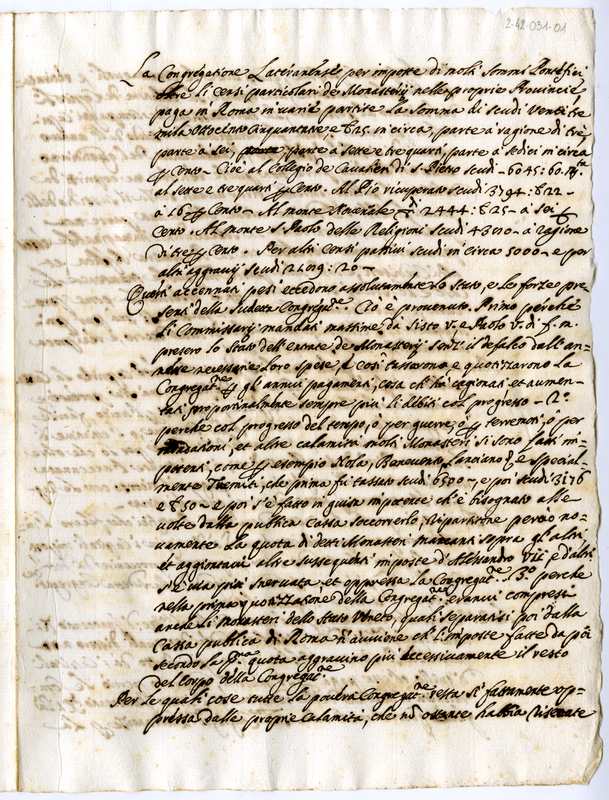 2-42-031-01
La Congregatione Lateranense per imposte di molti Sommi Pontefici
oltre li Censi particolari de Monasterij nelle proprie Provincie,
paga in Roma in varie partite la somma di scudi Venti tre
mila Ottocento Cinquantatre, e b. 25. in circa, parte à ragione di tre
parte à sei, parte à sette e tre quarti, parte à sedici in circa
per Cento - Cioè al Collegio de Cavalieri di S. Pietro scudi - 6045: 60.
al sette e tre quarti per Cento. Al Pio ricuperato scudi 3794: b. 22 -
à 16 per Cento - Al monte Novennale di 2444: b. 25 - à sei per
Cento. Al monte S. Paolo delle Religioni scudi 4300 - à ragione
di tre per Cento. Per altri Censi passivi scudi in circa 5000 - e per
altri aggravij scudi 24019: 20 -
Questi accennati pesi eccedono assolutamente lo stato, e le forze pre=
senti della sudetta Congregat.ne. Ciò è provenuto. Primo perche
li Commissarij mandati massime da Sisto V. e Paolo V. di f. m.
presero lo stato dell'entrate de Monasterij senza il defalco dell'an=
nue necessarie loro spese, e così tassarono e quotizzarono la
Congregat.ne per gli annui pagamenti, cosa ch'ha cagionati et aumen-
tati proportionalmente sempre più li debiti col progresso - 2.º
perche col progresso del tempo, ò per guerre, ò per terremoti, ò per
inondationi, et altre calamità molti Monasteri si sono fatti im=
potenti, come per esempio Nola, Benevento, Lanciano e special=
mente Tremiti, che prima fu tassato scudi 6500 - e poi scudi 3176
e b. 50 - e poi s'è fatto in guisa impotente ch'è bisognato alle
volte dalla publica Cassa soccorrerlo, Ripartitione però no=
vamente la quota di detti Monasteri mancanti sopra gl'altri,
et aggiontavi altre susseguenti imposte d'Alessandro VII e d'altri
s'è via più snervata et oppressa la Congregat.ne. 3.º perche
nella prima quotizzatione della Congregat.ne eranvi compresi
anche li Monasteri dello Stato Veneto, quali separatisi poi dalla
Cassa publica di Roma n'avviene che l'imposte fatte da poi
secondo la p.ma quota aggravino più eccessivamente il resto
del corpo della Congregat.ne
Per le quali cose tutte la povera Congregat.ne resta sì fattamente op=
pressa dalle proprie calamità, che nō ostante habbia